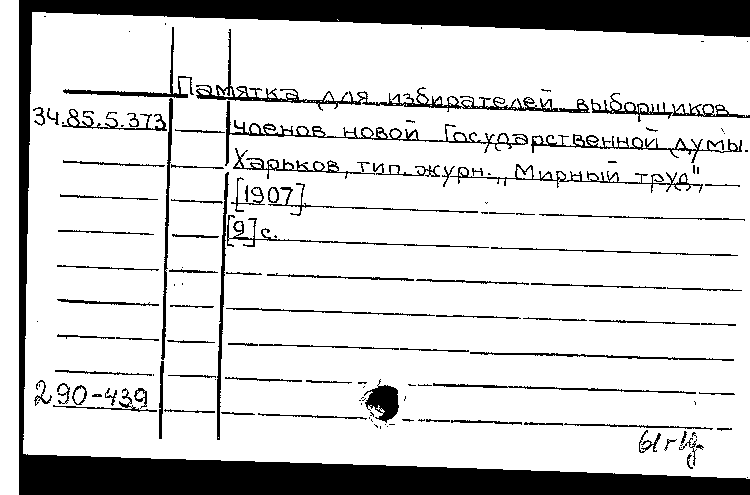 Памятка для избирателей выборщиков
34.85.5.373 членов новой Государственной думы.
Харьков, тип. журн. „Мирный труд",
[1907].
[9] с.
290-439